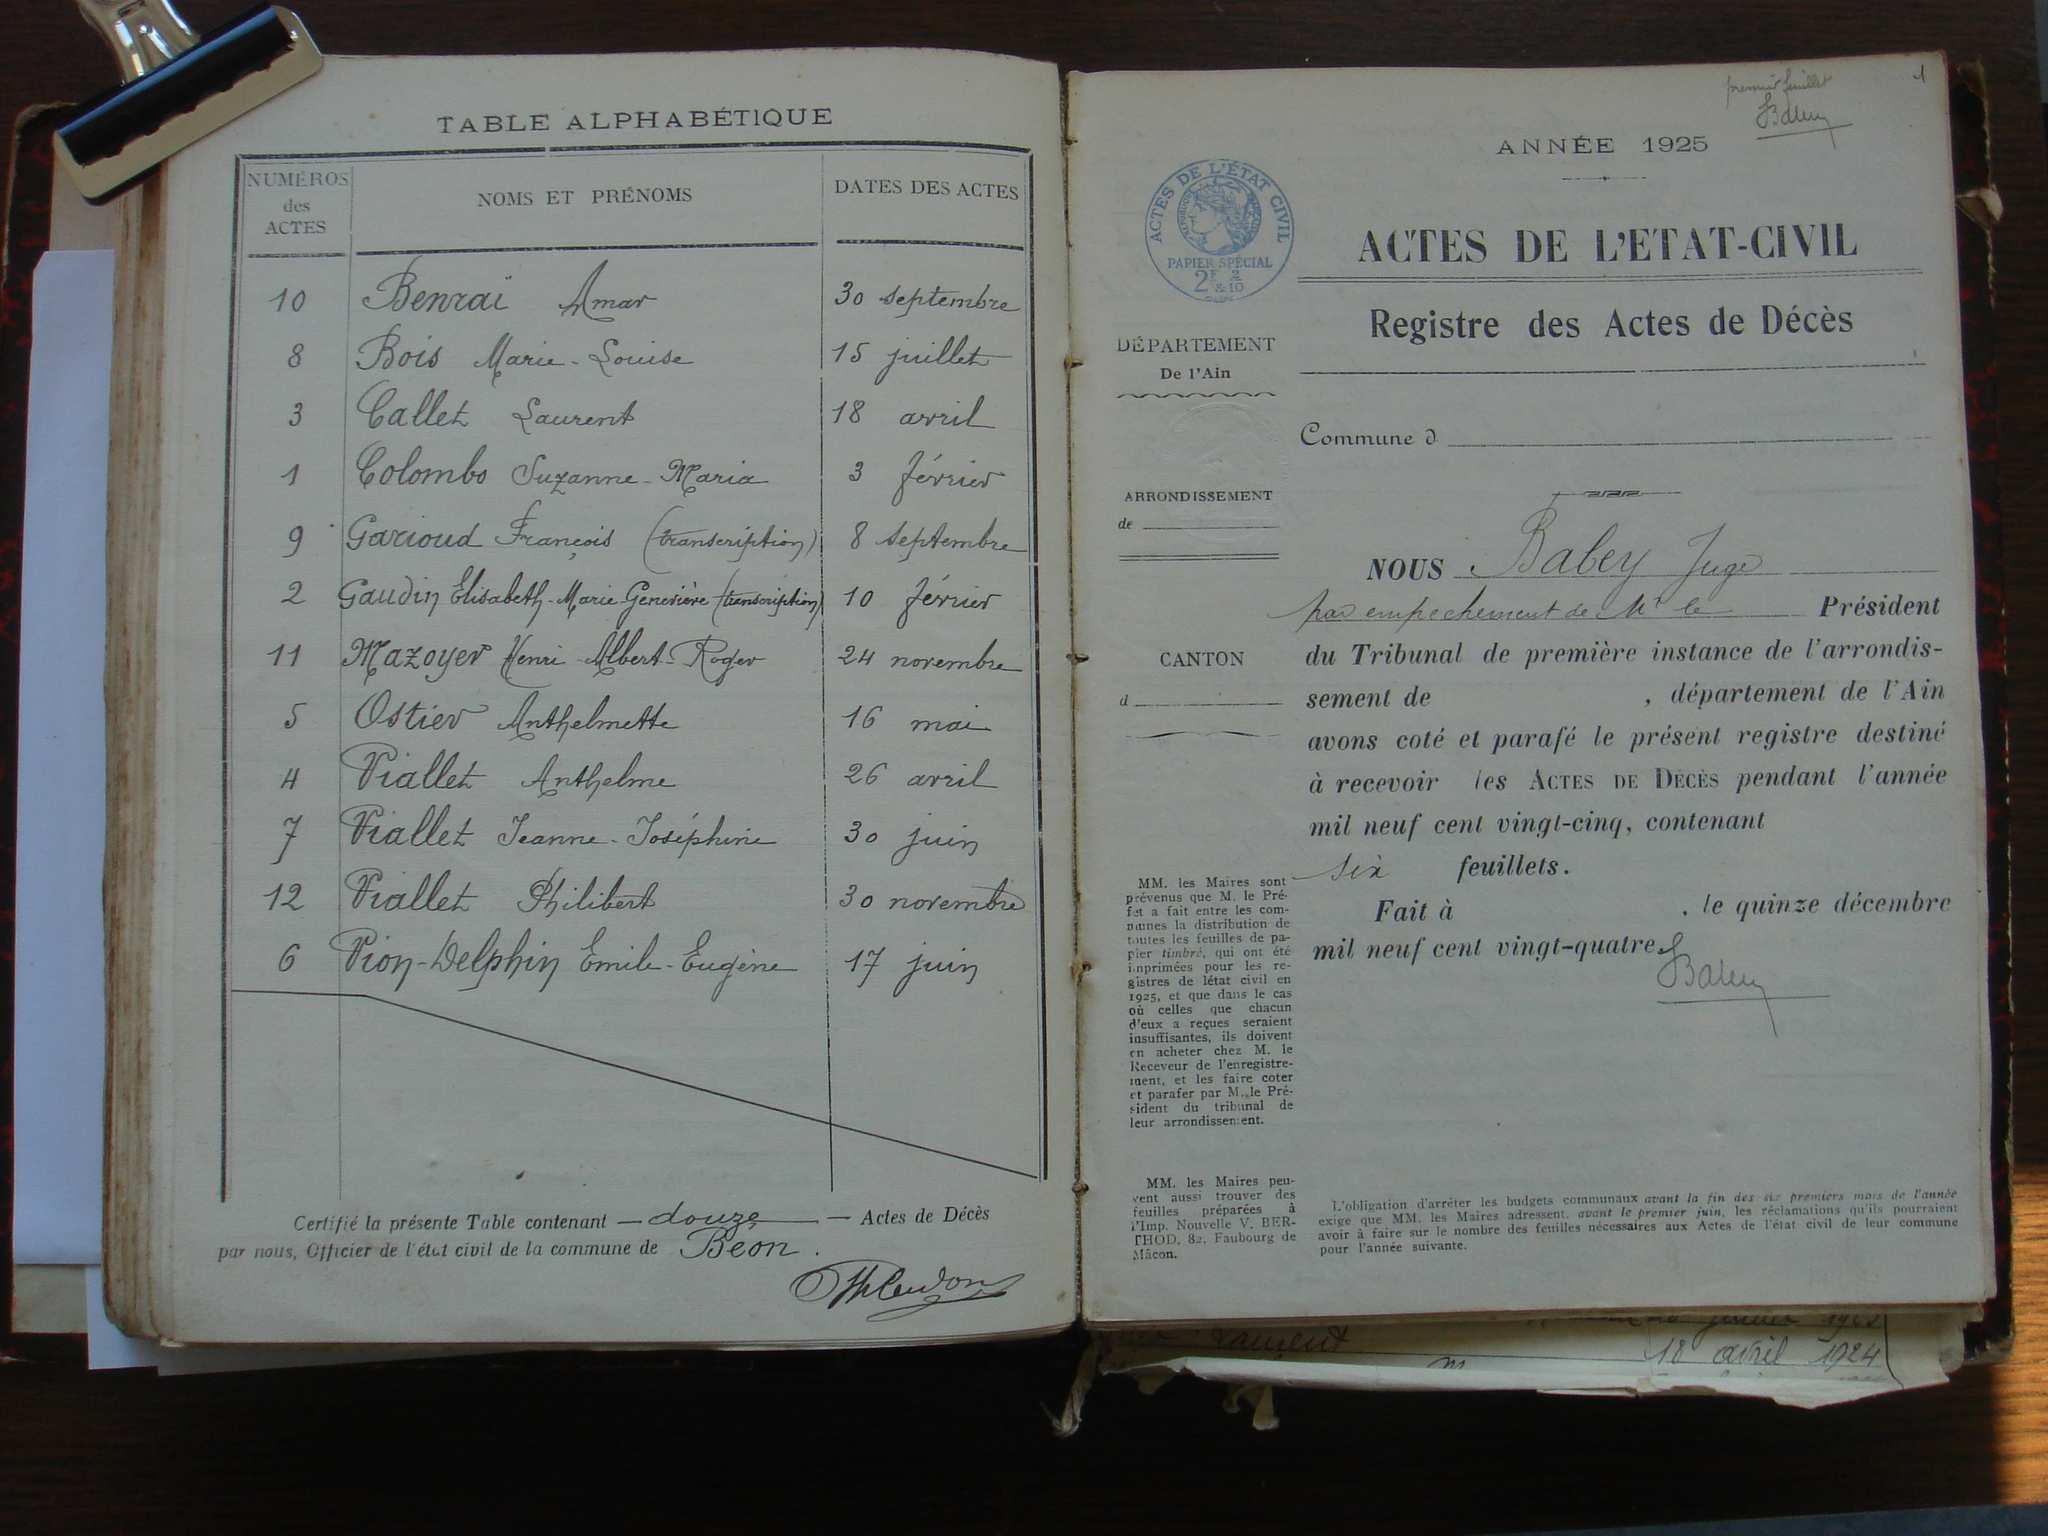 TABLE ALPHABÉTIQUE
NUMÉROS des ACTES NOMS ET PRÉNOMS DATES DES ACTES
10 Benraï Amar 30 septembre
8 Bois Marie-Louise 15 juillet
3 Callet Laurent 18 avril
1 Colombo Suzanne-Maria 3 février
9 Garioud François (transcription) 8 septembre
2 Gaudin Elisabeth-Marie Geneviève (transcription) 10 février
11 Mazoyer Henri-Albert-Roger 24 novembre
5 Ostier Anthelmette 16 mai
4 Viallet Anthelme 26 avril
7 Viallet Jeanne-Joséphine 30 juin
12 Viallet Philibert 30 novembre
6 Vion-Delphin Emile-Eugène 17 juin
Certifié la présente Table contenant — douze — Actes de Décès
par nous, Officier de l'état civil de la commune de Béon.
1
premier feuillet
Babey
ANNÉE 1925
ACTES DE L'ÉTAT CIVIL
PAPIER SPÉCIAL
2F 2/10
ACTES DE L'ETAT-CIVIL
Registre des Actes de Décès
DÉPARTEMENT
De l'Ain
Commune d
ARRONDISSEMENT
de
CANTON
d
NOUS Babey Juge
par empechement de Mr le Président
du Tribunal de première instance de l'arrondis-
sement de , département de l'Ain
avons coté et parafé le présent registre destiné
à recevoir les ACTES DE DÉCÈS pendant l'année
mil neuf cent vingt-cinq, contenant
six feuillets.
Fait à , le quinze décembre
mil neuf cent vingt-quatre
Babey
MM. les Maires sont
prévenus que M. le Pré-
fet a fait entre les com-
munes la distribution de
toutes les feuilles de pa-
pier timbré, qui ont été
imprimées pour les re-
gistres de létat civil en
1925, et que dans le cas
où celles que chacun
d'eux a reçues seraient
insuffisantes, ils doivent
en acheter chez M. le
Receveur de l'enregistre-
ment, et les faire coter
et parafer par M. le Pré-
sident du tribunal de
leur arrondissement.
MM. les Maires peu-
vent aussi trouver des
feuilles préparées à
l'Imp. Nouvelle V. BER-
THOD, 82, Faubourg de
Mâcon.
L'obligation d'arrêter les budgets communaux avant la fin des six premiers mois de l'année
exige que MM. les Maires adressent, avant le premier juin, les réclamations qu'ils pourraient
avoir à faire sur le nombre des feuilles nécessaires aux Actes de l'état civil de leur commune
pour l'année suivante.
Laurent
18 avril 1924